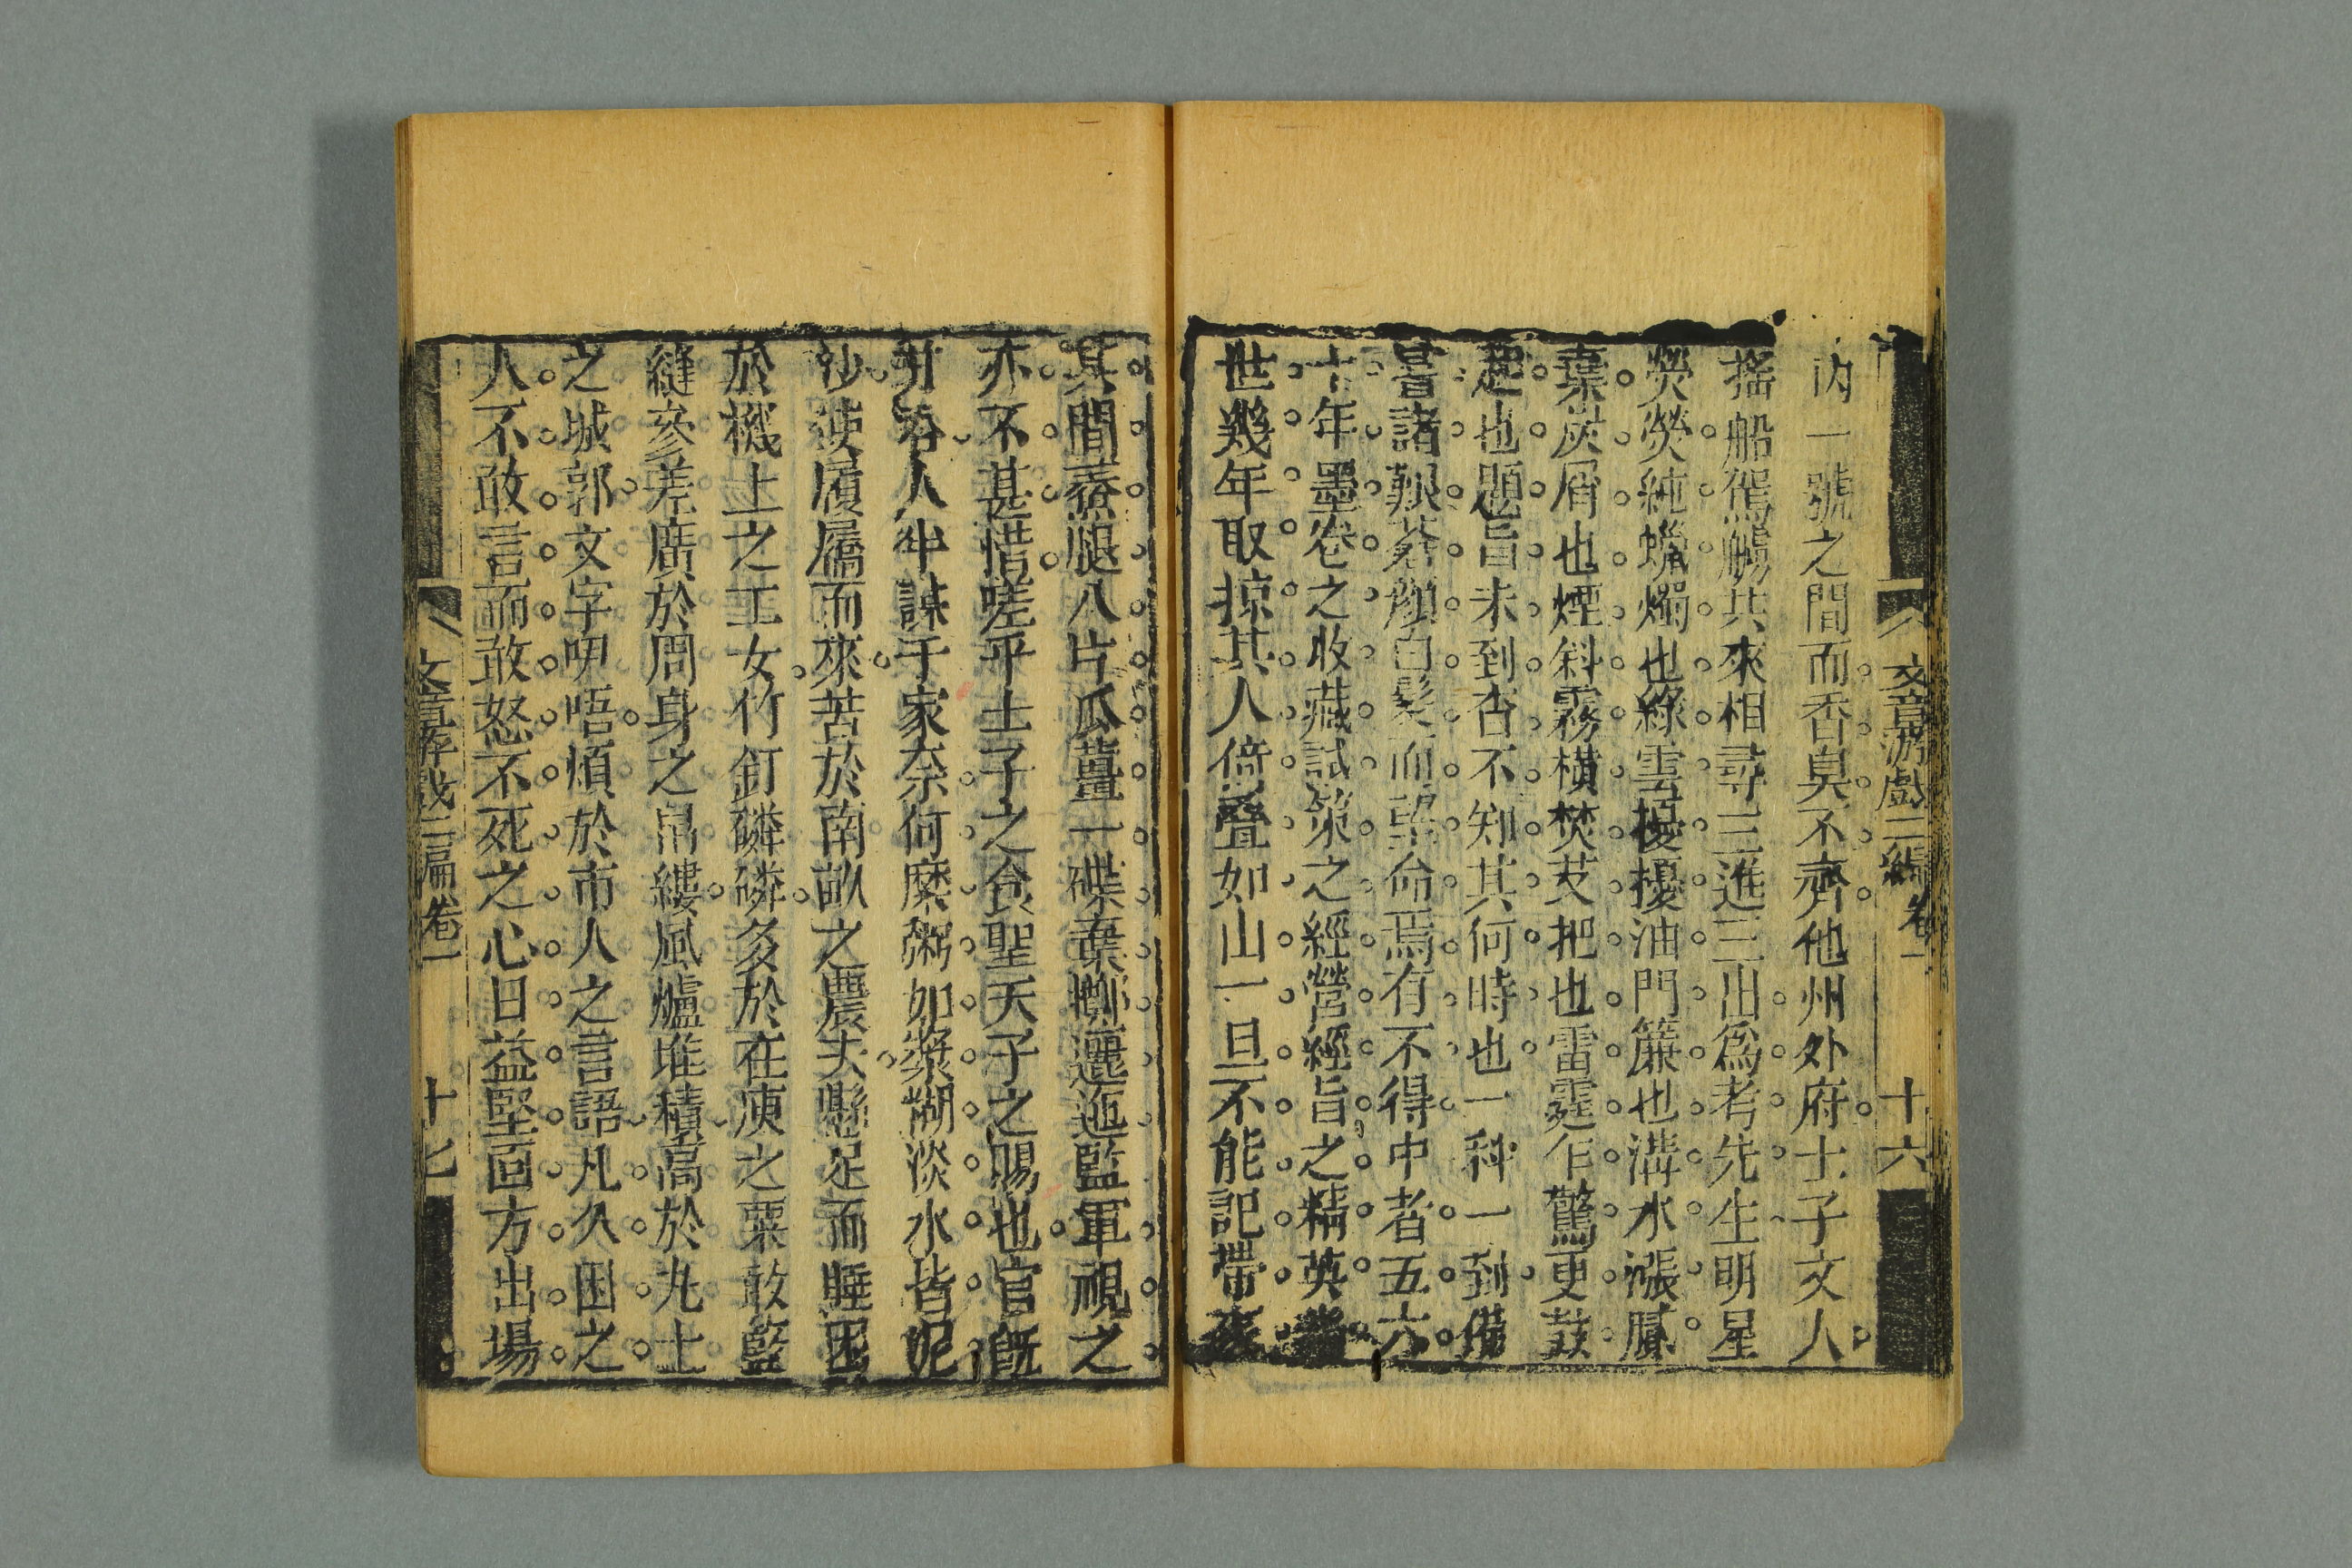 文章游戲二編卷一 十六
內一號之間而香臭不齊他州外府士子文人
搖船鴐鷊共來相尋三進三出爲考先生明星
熒熒純蠟燭也綠雲擾擾油門簾也溝水漲膩
棄炭屑也煙斜霧橫焚芨把也雷霆乍驚更鼓
起也題旨未到杳不知其何時也一科一到備
嘗諸艱蒼顏白髮而望命焉有不得中者五六
十年墨卷之收藏試策之經營經旨之精英
世幾年取掠其人倚疊如山一旦不能記帶來
其間蒸腿八片瓜薑一碟棄擲邐迤監軍視之
亦不甚惜嗟乎士子之食聖天子之賜也官旣
升人半諫于家奈何糜粥如漿糊淡水皆泥
沙使履屩而來苦於南畝之農夫懸足而睡困
於機上之工女竹釘磷磷多於在庾之粟敢籃
縫參差廣於周身之帛縷風爐堆積高於九土
之城郭文字吚唔煩於市人之言語凡久困之
人不敢言而敢怒不死之心日益堅固方出場
文章游戲二編卷一 十七